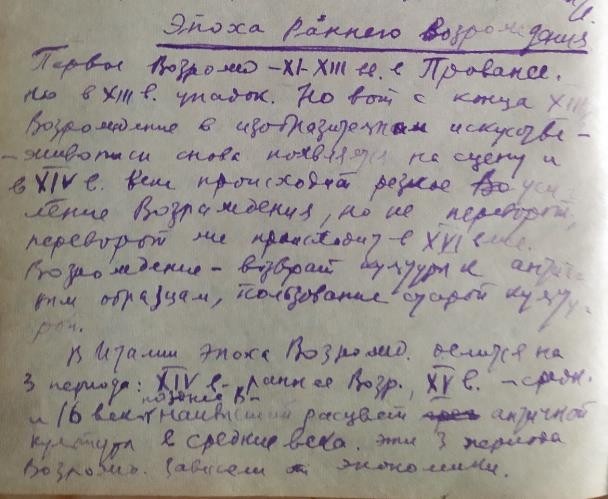 Эпоха Раннего Возрождения
Первое Возрожд – XI-XIII вв. в Провансе.
но в XIII в. упадок. Но вот с конца XIII
Возрождение в изобразительном искусстве –
– живописи снова появляется на сцену и
в XIV в. веке происходит резкое уси
ление Возраждения, но не переворот,
переворот же происходит в XVI веке.
Возрождение – возврат культуры к антич
ным образцам, пользование старой культу
рой.
В Италии эпоха Возрожд. делится на
3 периода: XIV в – раннее Возр., XV в. – средн.
позднее В –
и 16 век наивысший расцвет античной
культуры в средние века. Эти 3 периода
Возрожд. зависели от экономики.